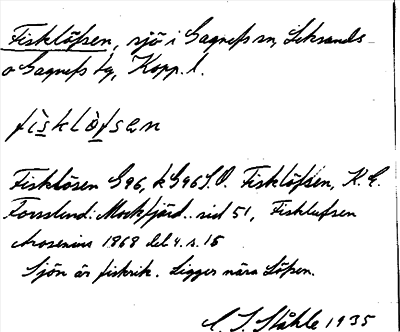 Fisklöfsen, sjö i Gagnefs sn, Leksands
o Gagnefs tg, Kopp. l.
fìsklòfsen
Fisklösen G96, k G96 S.O. Fisklöfsen, K. E.
Forsslund: Mockfjärd.. sid 51, Fisklufsen
Arosenius 1868 del 4. s. 15
Sjön är fiskrik. Ligger nära Löfsen.
C. I. Ståhle 1935